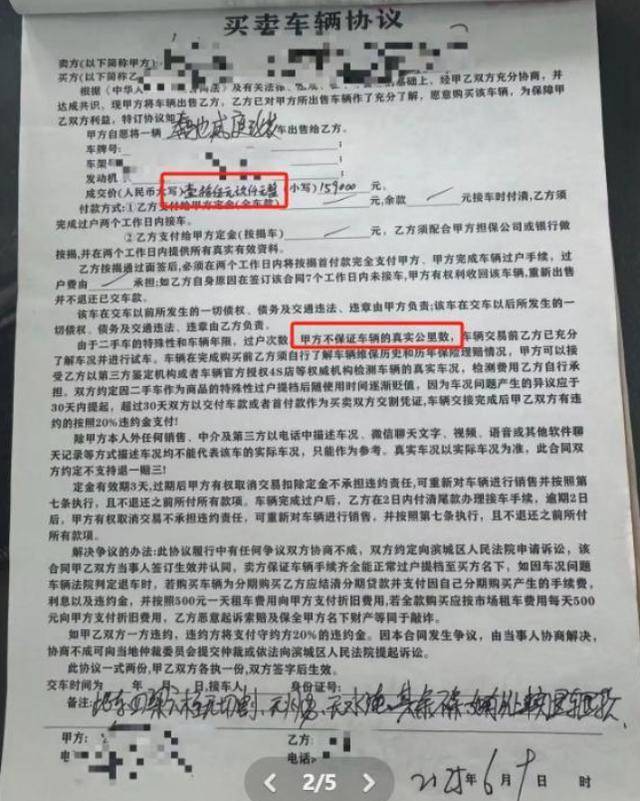 买卖车辆协议
卖方(以下简称甲方)
买方(以下简称乙
根据《中华人 及有关法 基础上，经甲乙双方充分协商，并
达成共识、现甲方将车辆出售乙方。乙方已对甲方所出售车辆作了充分了解，愿意购买该车辆，为保障甲
乙双方利益，特订协议如
甲方自愿将一辆 车出售给乙方。
车牌号:
车架
发动机
成交价(人民币大写) 小写)159000 元。
付款方式:①乙方支付给甲方定金(全车款) 元,余款 元接车时付清,乙方须
完成过户两个工作日内接车。
②乙方支付给甲方定金(按揭车) 元，乙方须配合甲方担保公司或银行做
按揭,并在两个工作日内提供所有真实有效资料。
乙方按揭通过面签后,必须在两个工作日内将按揭首付款完全支付甲方、甲方完成车辆过户手续，过
户费由 承担;如乙方自身原因在签订该合同7个工作日内未接车,甲方有权利收回该车辆,重新出售
并不退还已交车款。
该车在交车以前所发生的一切债权、债务及交通违法、违章由甲方负责;该车在交车以后所发生的一
切债权、债务及交通违法、违章由乙方负责。
由于二手车的特殊性和车辆年限，过户次数，甲方不保证车辆的真实公里数，车辆交易前乙方已充分
了解车况并进行试车。车辆在完成购买前乙方须自行了解车辆维保历史和历年保险理赔情况，甲方可以接
受乙方以第三方鉴定机构或者车辆官方授权4S店等权威机构检测车辆的真实车况，检测费用乙方自行承
担。双方约定因二手车作为商品的特殊性过户提档后随使用时间逐渐贬值，因为车况问题产生的异议应于
30天内提起，超过30天双方以交付车款或者首付款作为买卖双方交割凭证,车辆交接完成后甲乙双方有违
约的按照20%违约金支付!
除甲方本人外任何销售、中介及第三方以电话中描述车况、微信聊天文字、视频、语音或其他软件聊
天记录等方式描述车况均不能代表该车的实际车况，只能作为参考。真实车况以实际车况为准，此合同双
方约定不支持退一赔三!
定金有效期3天,过期后甲方有权取消交易扣除定金不承担违约责任,可重新对车辆进行销售并按照第
七条执行，且不退还之前所付所有款项。车辆完成过户后，乙方在2日内付清尾款办理接车手续，逾期2日
后，甲方有权取消交易不承担违约责任，可重新对车辆进行销售，并按照第七条执行，且不退还之前所付
所有款项。
解决争议的办法:此协议履行中有任何争议双方协商不成，双方约定向滨城区人民法院申请诉讼，该
合同甲乙双方当事人签订生效并认同，卖方保证车辆手续齐全能正常过户提档至买方名下，如因车况问题
车辆法院判定退车时，若购买车辆为分期购买乙方应结清分期贷款并支付因自己分期购买产生的手续费，
利息以及违约金，并按照500元一天租车费用向甲方支付折旧费用,若全款购买应按市场租车费用每天500
元向甲方支付折旧费用，乙方愿意起诉索赔及保全甲方名下财产等同于敲诈。
如甲乙双方一方违约，违约方将支付守约方20%的违约金。因本合同发生争议，由当事人协商解决，
协商不成可向当地仲裁委员会提交仲裁或依法向滨城区人民法院提起诉讼。
此协议一式两份,甲乙双方各执一份,双方签字后生效。
交车时间为 年 月 日,接车人: 身份证号:
备注:
甲方: 乙方:
电 电话
6月9日 时
2/5